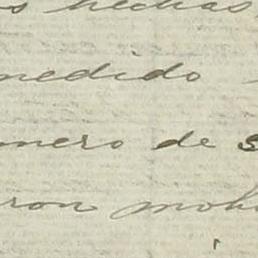 s hechas
medido
mero de s
ron moh